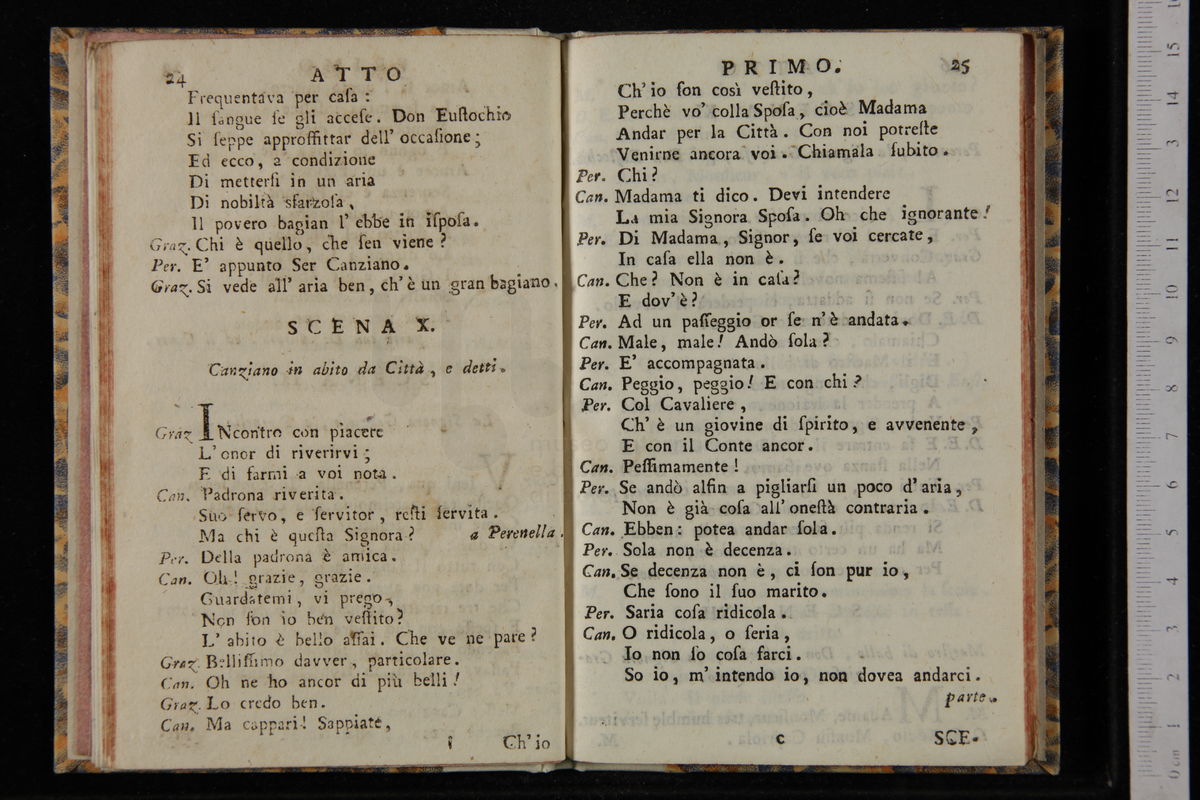 24 ATTO
Frequentava per caſa :
Il ſangue ſe gli acceſe. Don Euſtochio
Si ſeppe approffittar dell' occaſione ;
Ed ecco, a condizione
Di metterſi in un aria
Di nobiltà sfarzoſa ,
Il povero bagian l' ebbe in iſpoſa.
Graz. Chi è quello, che ſen viene ?
Per. E' appunto Ser Canziano.
Graz. Si vede all' aria ben, ch' è un gran bagiano.
SCENA X.
Canziano in abito da Città , e detti.
Graz INcontro con piacere
L' onor di riverirvi ;
E di farmi a voi nota .
Can. Padrona riverita .
Suo ſervo, e ſervitor , reſti ſervita .
Ma chi è queſta Signora ? a Perenella .
Per. Della padrona è amica .
Can. Oh ! grazie, grazie .
Guardatemi, vi prego ,
Non ſon io ben veſtito ?
L' abito è bello aſſai . Che ve ne pare ?
Graz. Belliſſimo davver , particolare .
Can. Oh ne ho ancor di più belli !
Graz. Lo credo ben .
Can. Ma cappari ! Sappiate,
Ch' io
PRIMO. 25
Ch' io ſon così veſtito ,
Perchè vo' colla Spoſa , cioè Madama
Andar per la Città . Con noi potreſte
Venirne ancora voi . Chiamala ſubito .
Per. Chi ?
Can. Madama ti dico . Devi intendere
La mia Signora Spoſa . Oh che ignorante !
Per. Di Madama , Signor , ſe voi cercate ,
In caſa ella non è .
Can. Che ? Non è in caſa ?
E dov' è ?
Per. Ad un paſſeggio or ſe n' è andata .
Can. Male , male ! Andò ſola ?
Per. E' accompagnata .
Can. Peggio , peggio ! E con chi ?
Per. Col Cavaliere ,
Ch' è un giovine di ſpirito , e avvenente ,
E con il Conte ancor .
Can. Peſſimamente !
Per. Se andò alfin a pigliarſi un poco d' aria ,
Non è già coſa all' oneſtà contraria .
Can. Ebben : potea andar ſola .
Per. Sola non è decenza .
Can. Se decenza non è , ci ſon pur io ,
Che ſono il ſuo marito .
Per. Saria coſa ridicola .
Can. O ridicola , o ſeria ,
Io non ſo coſa farci .
So io , m' intendo io , non dovea andarci .
parte .
C SCE-